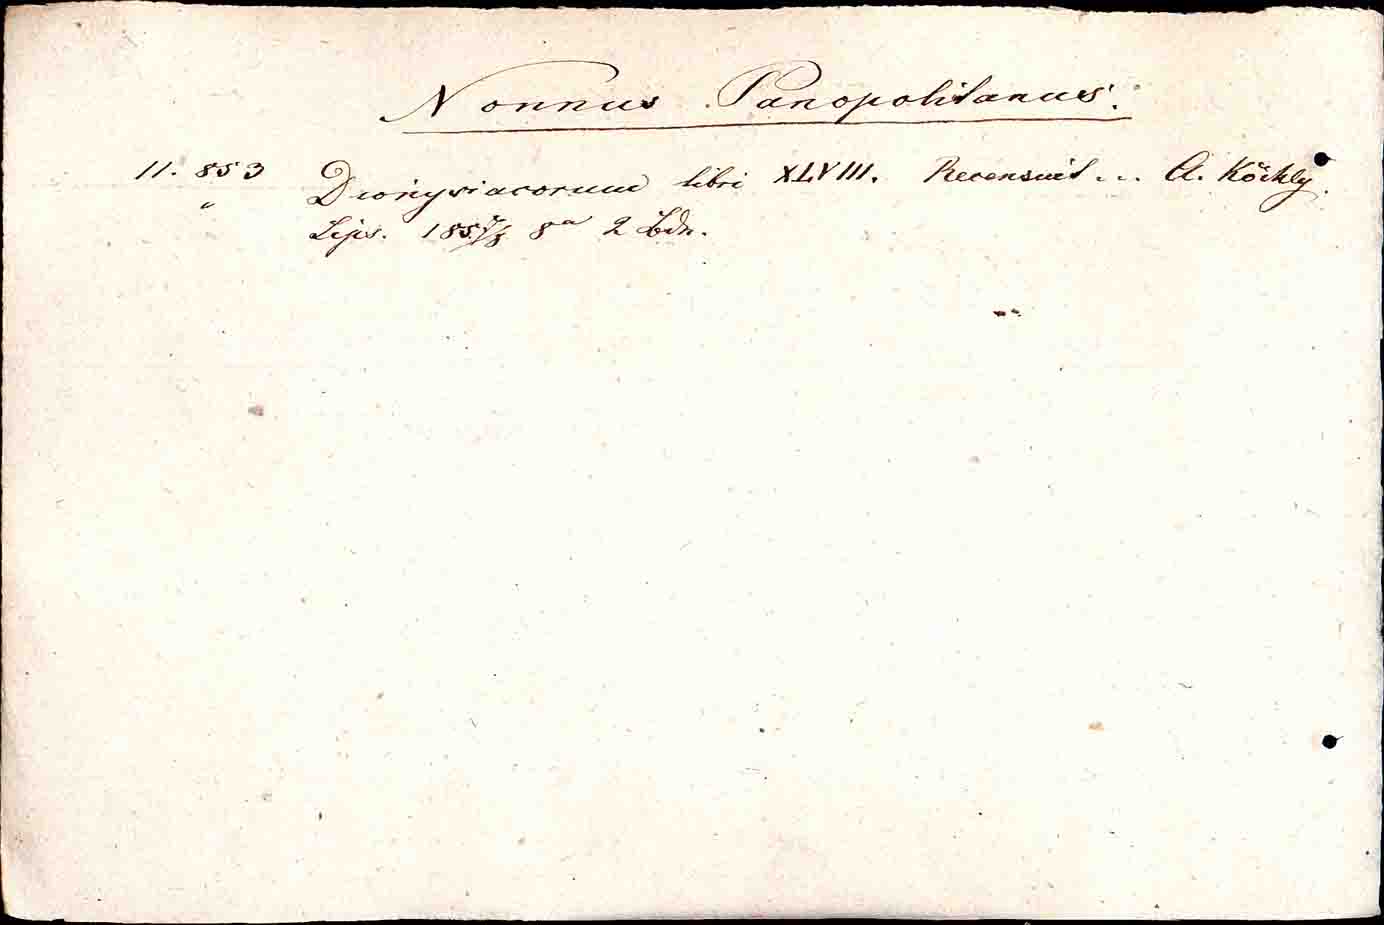 Nonnus Panopolitanus.
11. 853 Dionysiacorum libri XLVIII. Recensuit... A. Köchly.
" Lips. 1857/8 8° 2 Bdn.